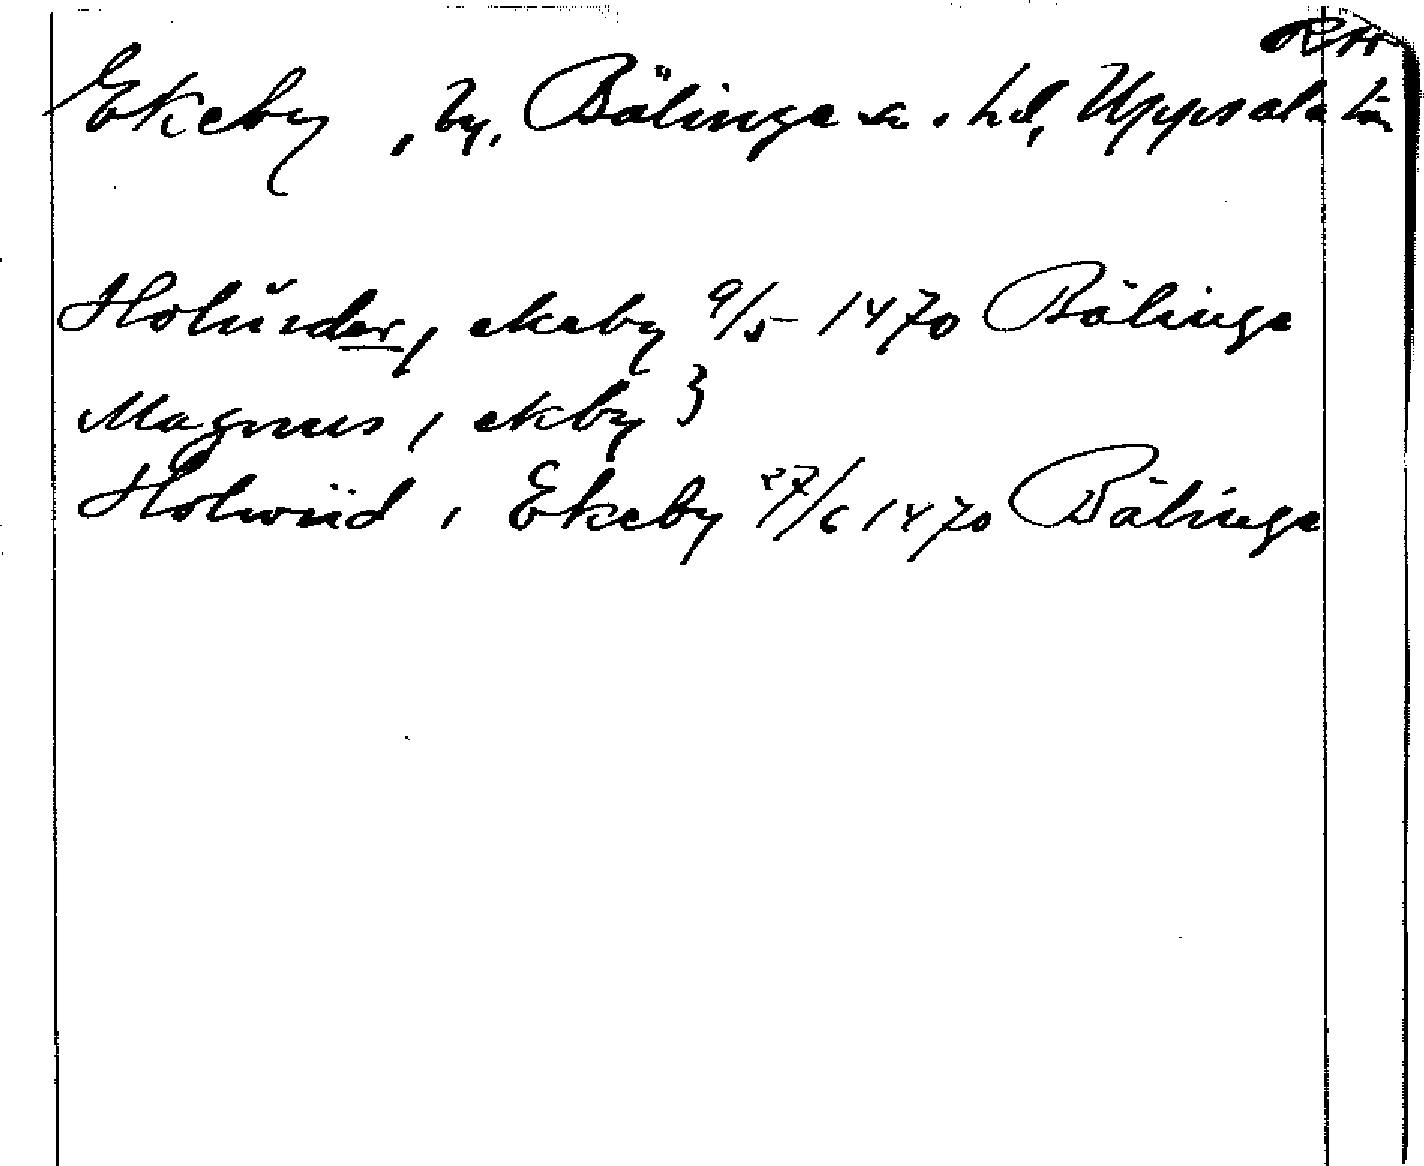 Ekeby, by, Bälinge sn. hd, Uppsala län
ekeby 9/5 1470 Bälinge
Magnus, ekby }
Holwiid, Ekeby 27/6 1470 Bälinge